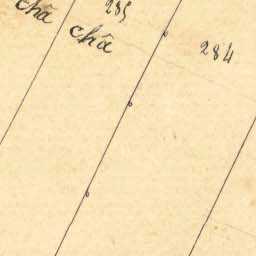 chã
285
chã
284